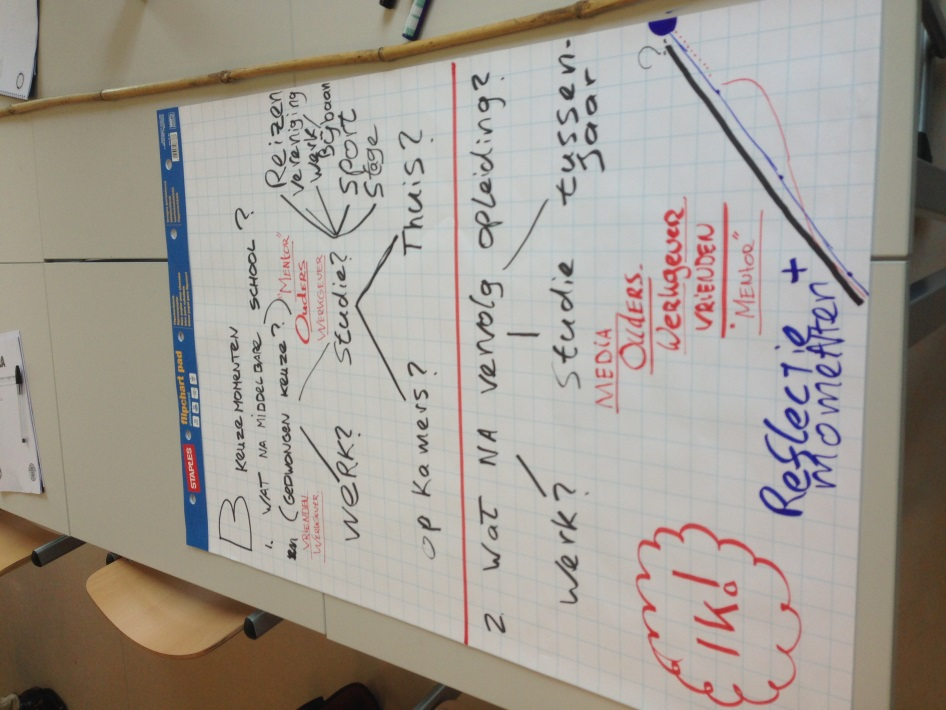 STAPLES flipchart pad
B KEUZEMOMENTEN
1. WAT NA MIDDELBARE SCHOOL?
(GEDWONGEN KEUZE?)
VRIENDEN
WERKGEVER
"MENTOR"
OUDERS
WERKGEVER
Reizen
Vereniging
Werk/
Bijbaan
Sport
Stage
Werk? Studie?
Op kamers? Thuis?
2. Wat NA vervolg opleiding?
Werk? Studie tussen-
jaar
MEDIA
OUDERS.
Werkgever
VRIENDEN
"MENTOR"
?
IK!
Reflectie
momenten +